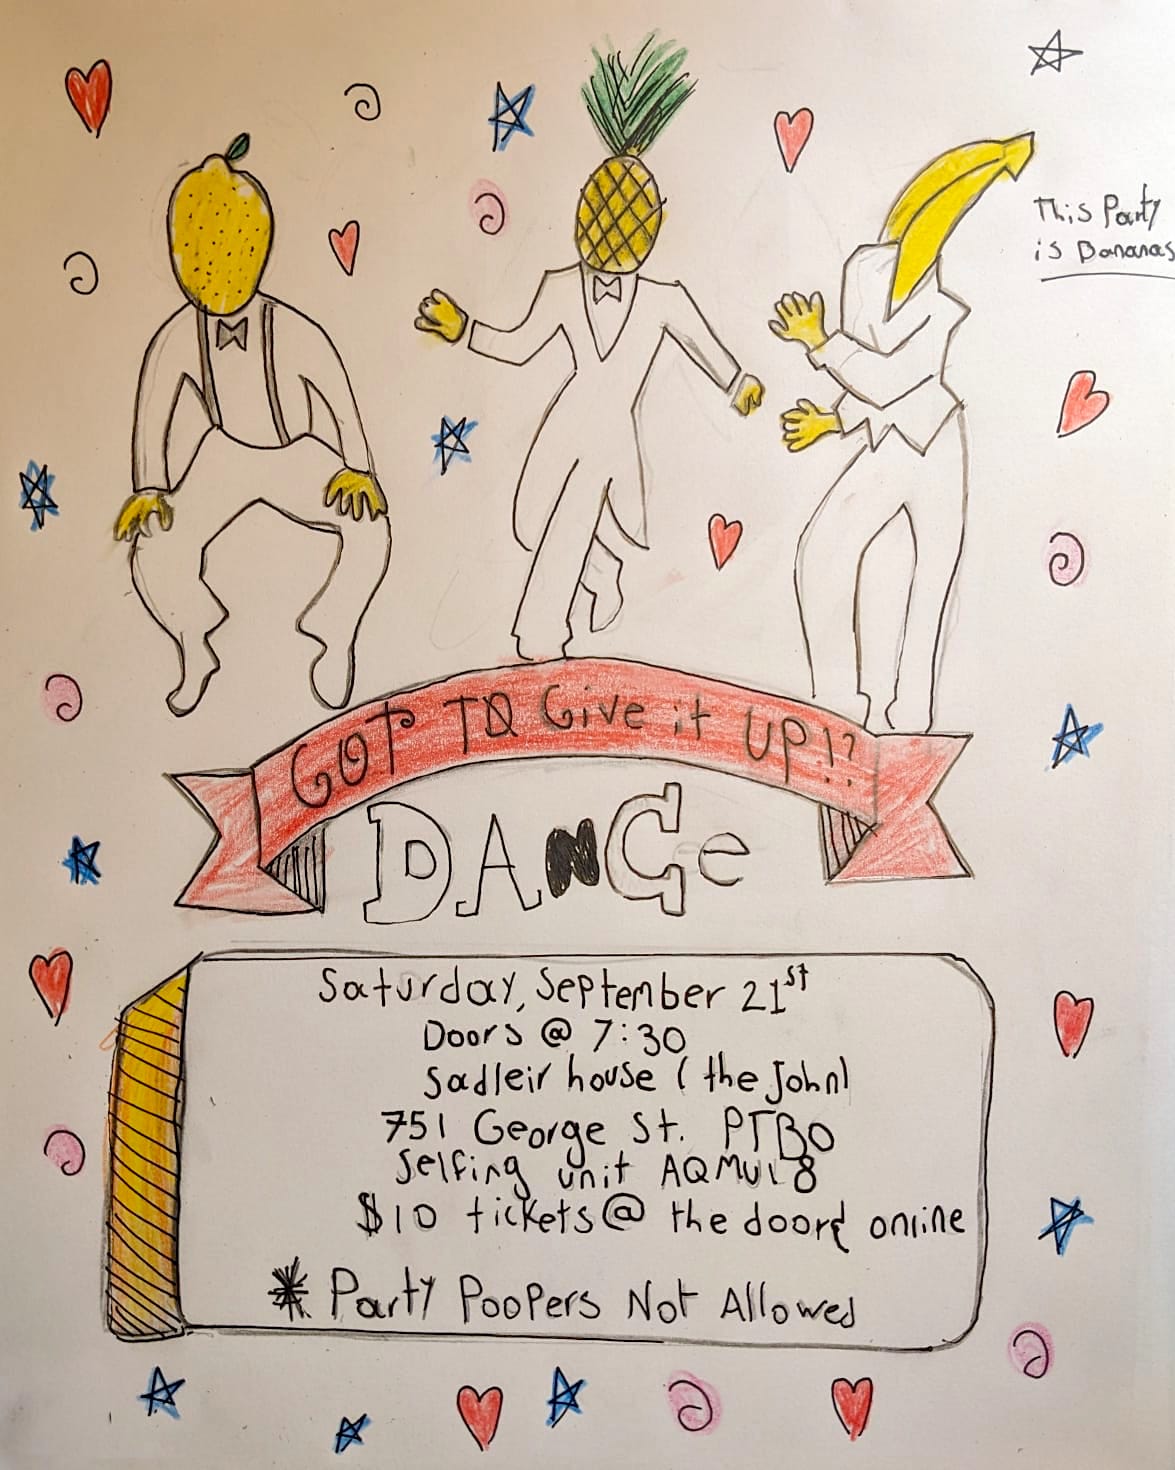 This Party
is Bananas
GOT TO Give it UP!?
DANCe
Saturday, September 21st
Doors @ 7:30
Sadleir house ( the John)
751 George St. PTBO
Selfing unit AQMul8
$10 tickets @ the doord online
* Party Poopers Not Allowed